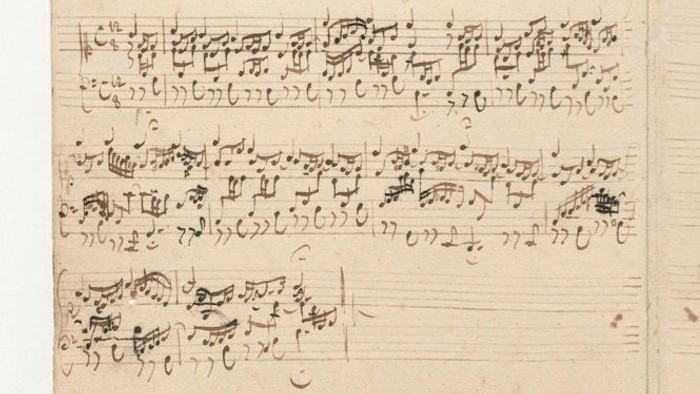 12
8
12
8